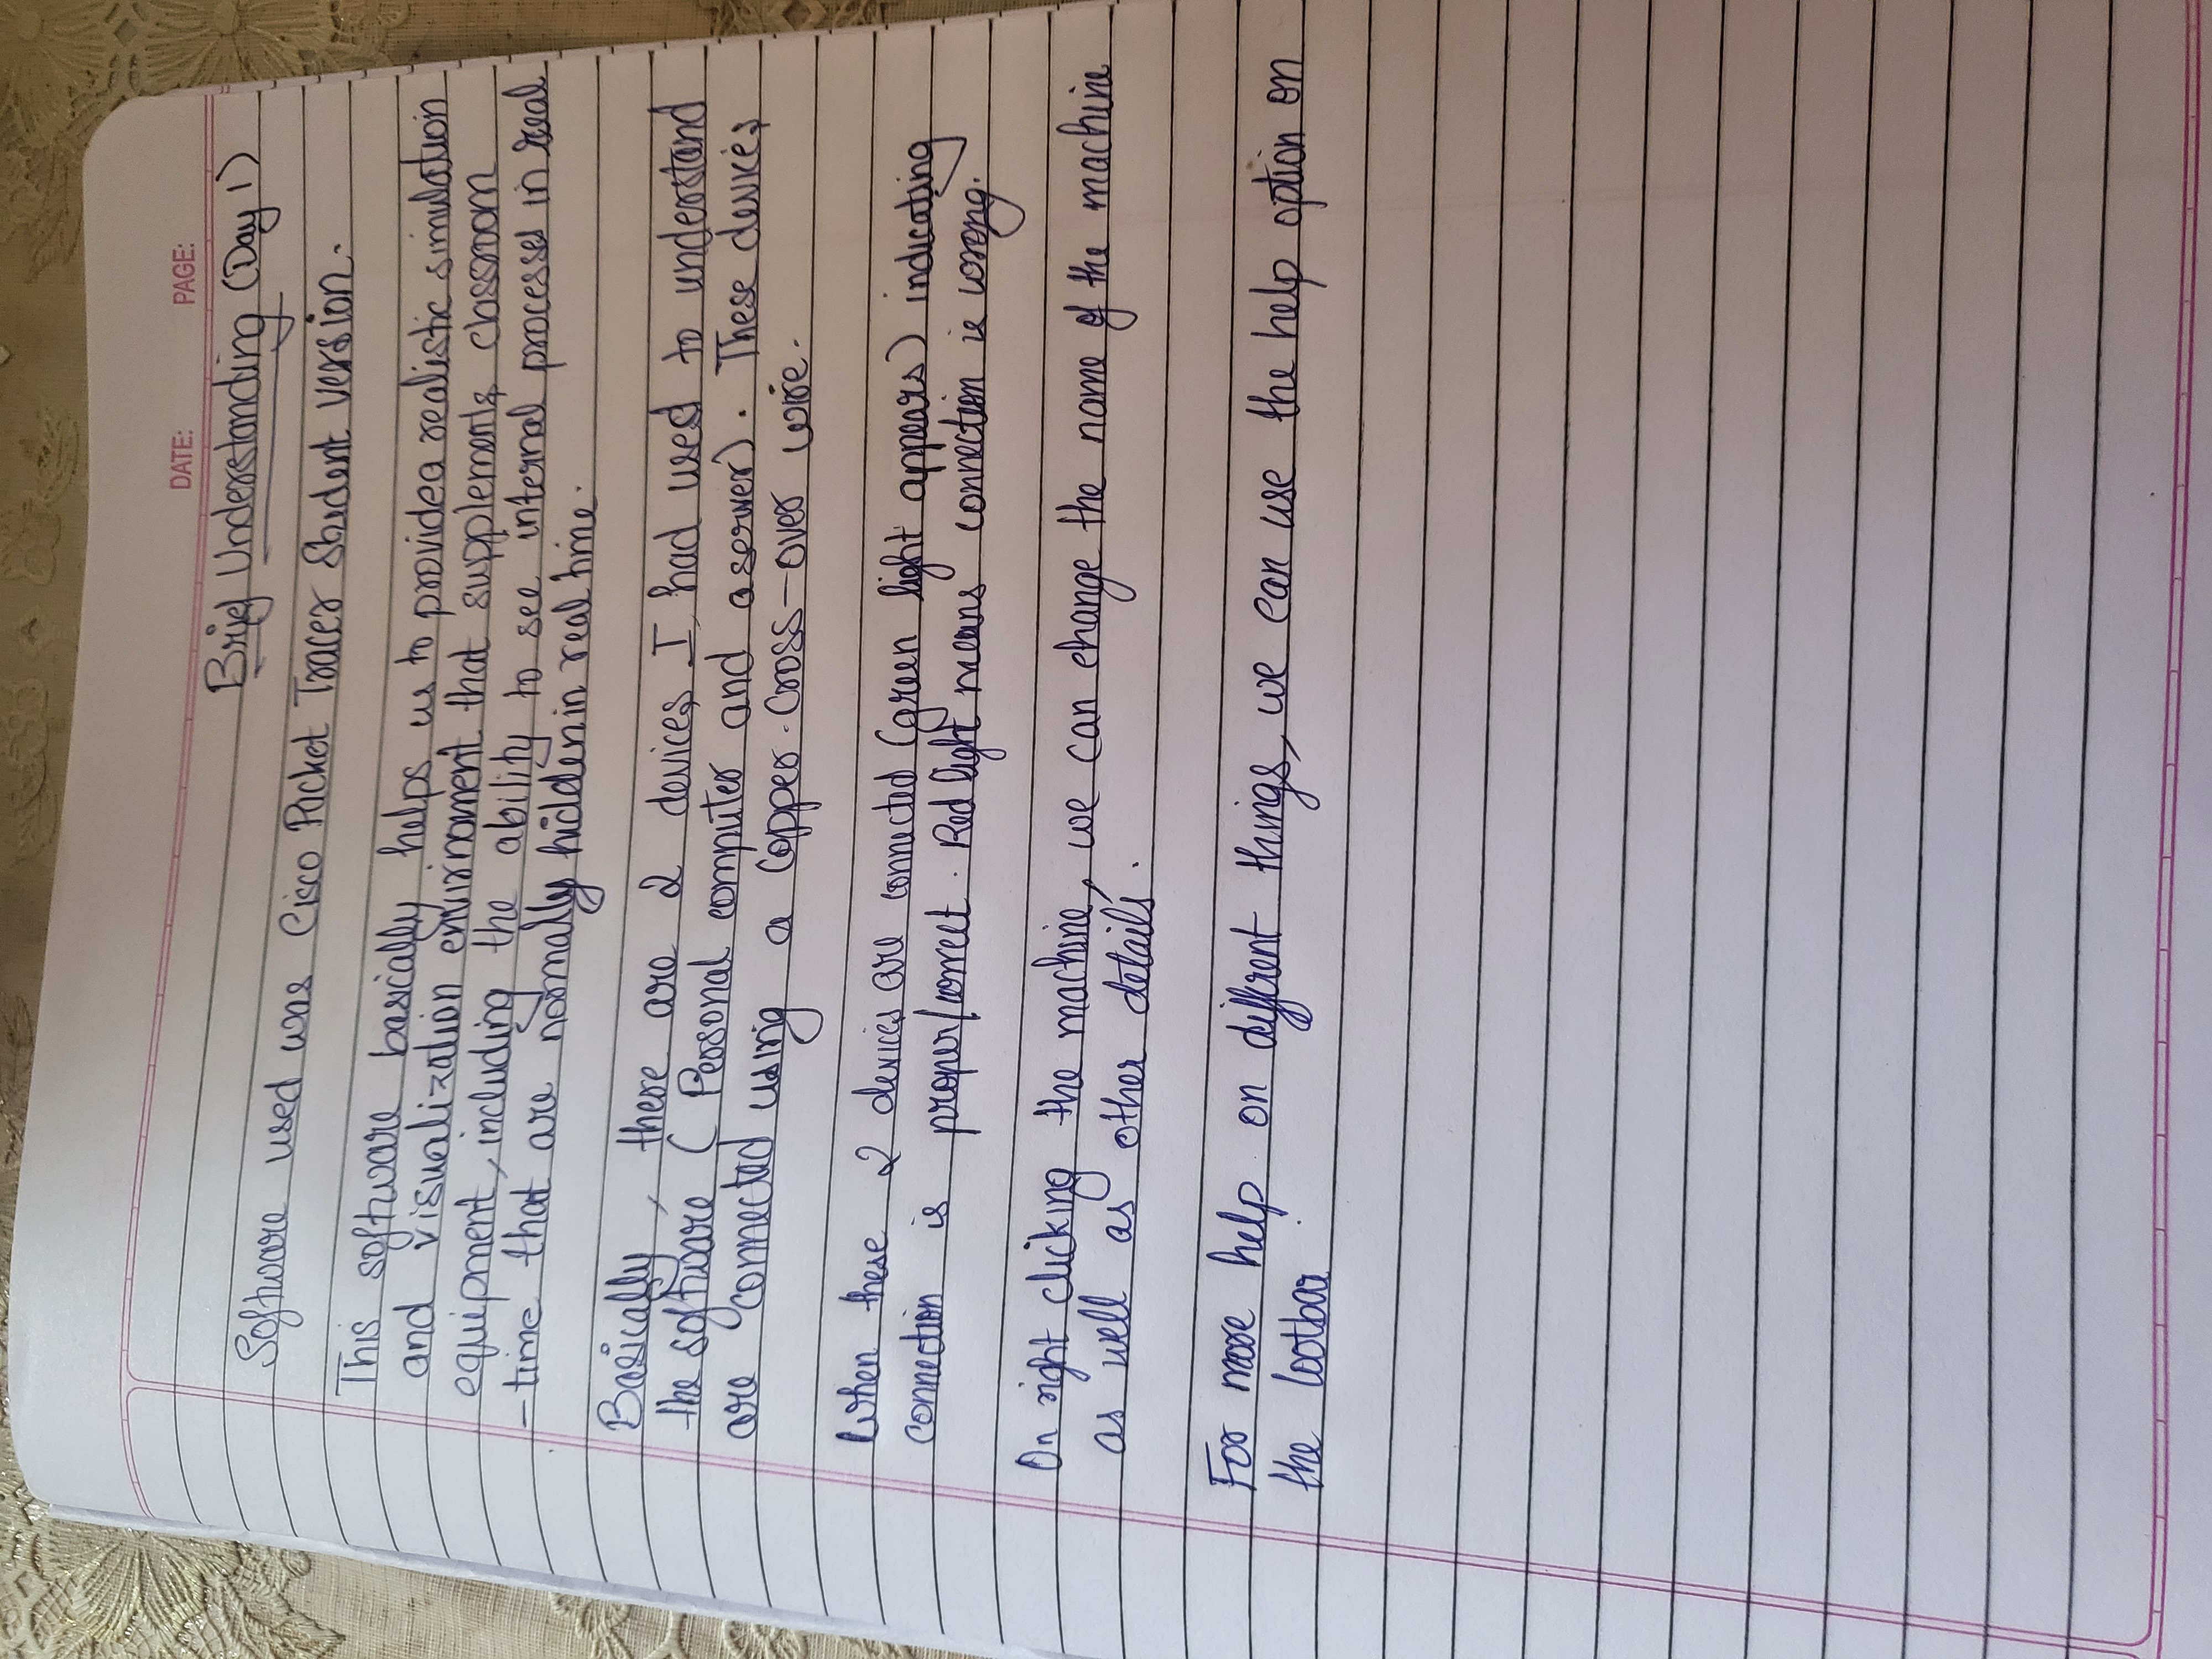 DATE: PAGE:
Brief Understanding (Day 1)
Software used was Cisco Packet Tracer Student version.
This software basically helps us to provide a realistic simulation
and visualization envirnoment that supplements classroom
equipment, including the ability to see internal processes in real
-time that are normally hidden in real time.
Basically, there are 2 devices I had used to understand
the software ( Personal computer and a server). These devices
are connected using a Copper-Cross-over wire.
When these 2 devices are connected (green light appears) indicating
connection is proper/correct. Red light means connection is wrong.
On right clicking the machine, we can change the name of the machine
as well as other details.
For more help on different things, we can use the help option on
the tootbar